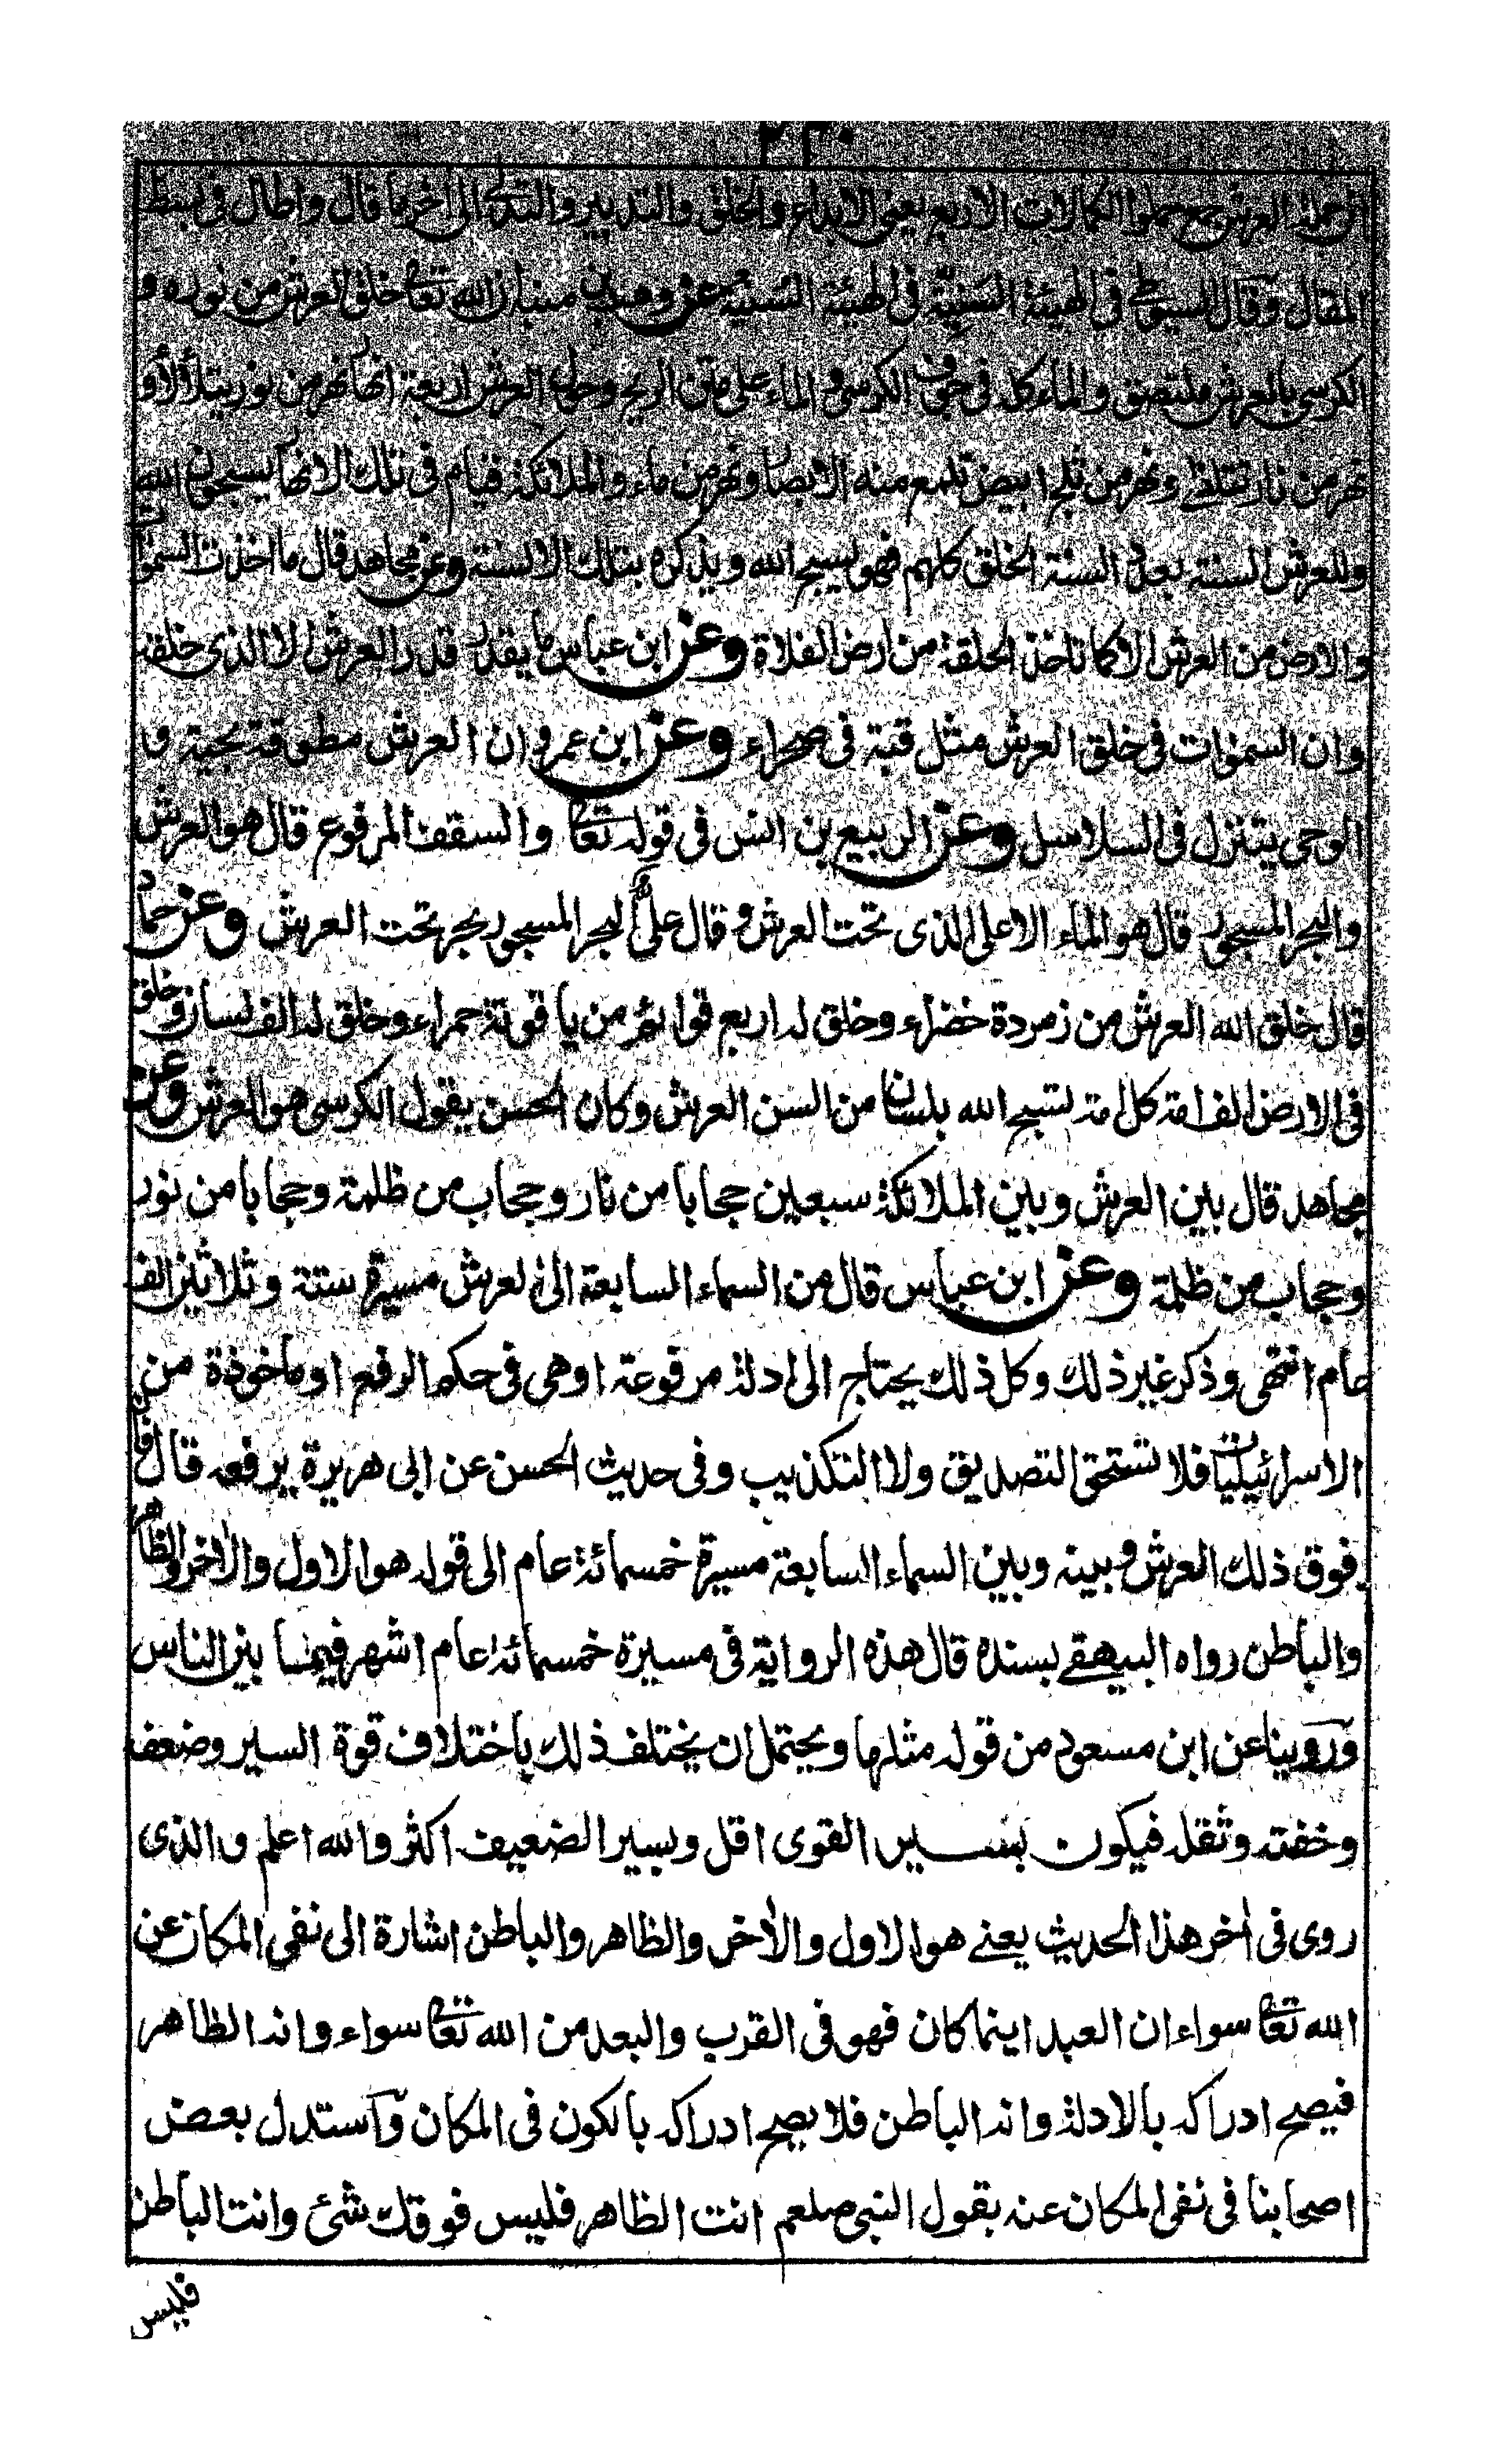 العرش حملوا الكمالات الاربع يعنى الابداع والخلق والتدبير والتدلى الى اخر ما قال واطال فى بسط
المقال وقال السيوطى فى الهيئة السنية فى الهيئة السنية عن وهب بن منبه ان الله تعالى خلق العرش من نوره و
الكرسى بالعرش ملتصق والماء كله فى جوف الكرسى و الماء على متن الريح وحول العرش اربعة انهار نهر من نور يتلألأ و
نهر من نار تتلظى ونهر من ثلج ابيض تلمع منه الابصار ونهر من ماء والملائكة قيام فى تلك الانهار يسبحون الله
وللعرش السنة بعدد السنة الخلق كلهم فهو يسبح الله ويذكره بتلك الالسنة وعن مجاهد قال ما اخذت السموات
والارض من العرش الا كما تاخذ الحلقة من ارض الفلاة وعن ابن عباس ما يقدر قدر العرش الا الذى خلقه
وان السموات فى خلق العرش مثل قبة فى صحراء وعن ابن عمرو ان العرش مطوقة بحية و
الوحى يتنزل فى السلاسل وعن الربيع بن انس فى قوله تعالى والسقف المرفوع قال هو العرش
والبحر المسجور قال هو الماء الاعلى الذى تحت العرش و قال على البحر المسجور بحر تحت العرش وعن حماد
قال خلق الله العرش من زمردة خضراء وخلق له اربع قوائم من ياقوتة حمراء وخلق له الف لسان وخلق
فى الارض الف امة كل امة تسبح الله بلسان من السن العرش وكان الحسن يقول الكرسى هو العرش وعن
مجاهد قال بين العرش وبين الملائكة سبعين حجابا من نار وحجاب من ظلمة وحجابا من نور
وحجاب من ظلمة وعن ابن عباس قال من السماء السابعة الى العرش مسيرة ستة وثلاثين الف
عام انتهى وذكر غير ذلك وكل ذلك يحتاج الى ادلة مرفوعة اوهى فى حكم الرفع او ماخوذة من
الاسرائيليات فلا تستحق التصديق ولا التكذيب وفى حديث الحسن عن ابى هريرة يرفعه قال فان
فوق ذلك العرش و بينه وبين السماء السابعة مسيرة خمسمائة عام الى قوله هو الاول والاٰخر والظاهر
والباطن رواه البيهقے بسنده قال هذه الرواية فى مسيرة خمسمائة عام اشهر فيما بين الناس
وروينا عن ابن مسعود من قوله مثلها ويحتمل ان يختلف ذلك باختلاف قوة السير وضعفه
وخفته وثقله فيكون بسير القوى اقل وبسير الضعيف اكثر والله اعلم والذى
روى فى اٰخر هذا الحديث يعنے هو الاول والاٰخر والظاهر والباطن اشارة الى نفى المكان عن
الله تعالى سواء ان العبد اينما كان فهو فى القرب والبعد من الله تعالى سواء وانه الظاهر
فيصح ادراكه بالادلة وانه الباطن فلا يصح ادراكه بالكون فى المكان واستدل بعض
اصحابنا فى نفى المكان عنه بقول النبى صلعم انت الظاهر فليس فوقك شئ وانت الباطن
فليس